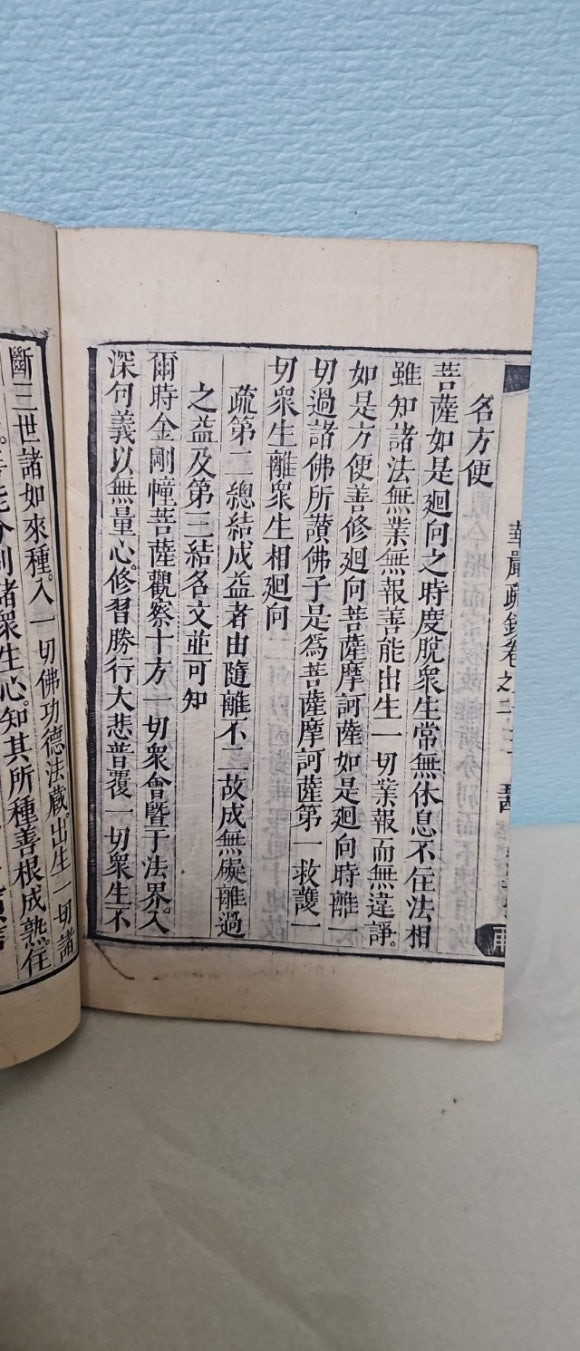 華嚴疏鈔卷之二十
名方便
菩薩如是廻向之時度脫衆生常無休息不住法相
雖知諸法無業無報善能出生一切業報而無違諍。
如是方便善修廻向菩薩摩訶薩如是廻向時離一
切過諸佛所讚佛子是爲菩薩摩訶薩第一救護一
切衆生離衆生相廻向
疏第二總結成益者由隨離不二故成無礙離過
之益及第三結名文並可知
爾時金剛幢菩薩觀察十方一切衆會暨于法界。入
深句義以無量心。修習勝行大悲普覆一切衆生不
斷三世諸如來種。入一切佛功德法藏。出生一切諸
諸衆生心。知其所種善根成熟。住